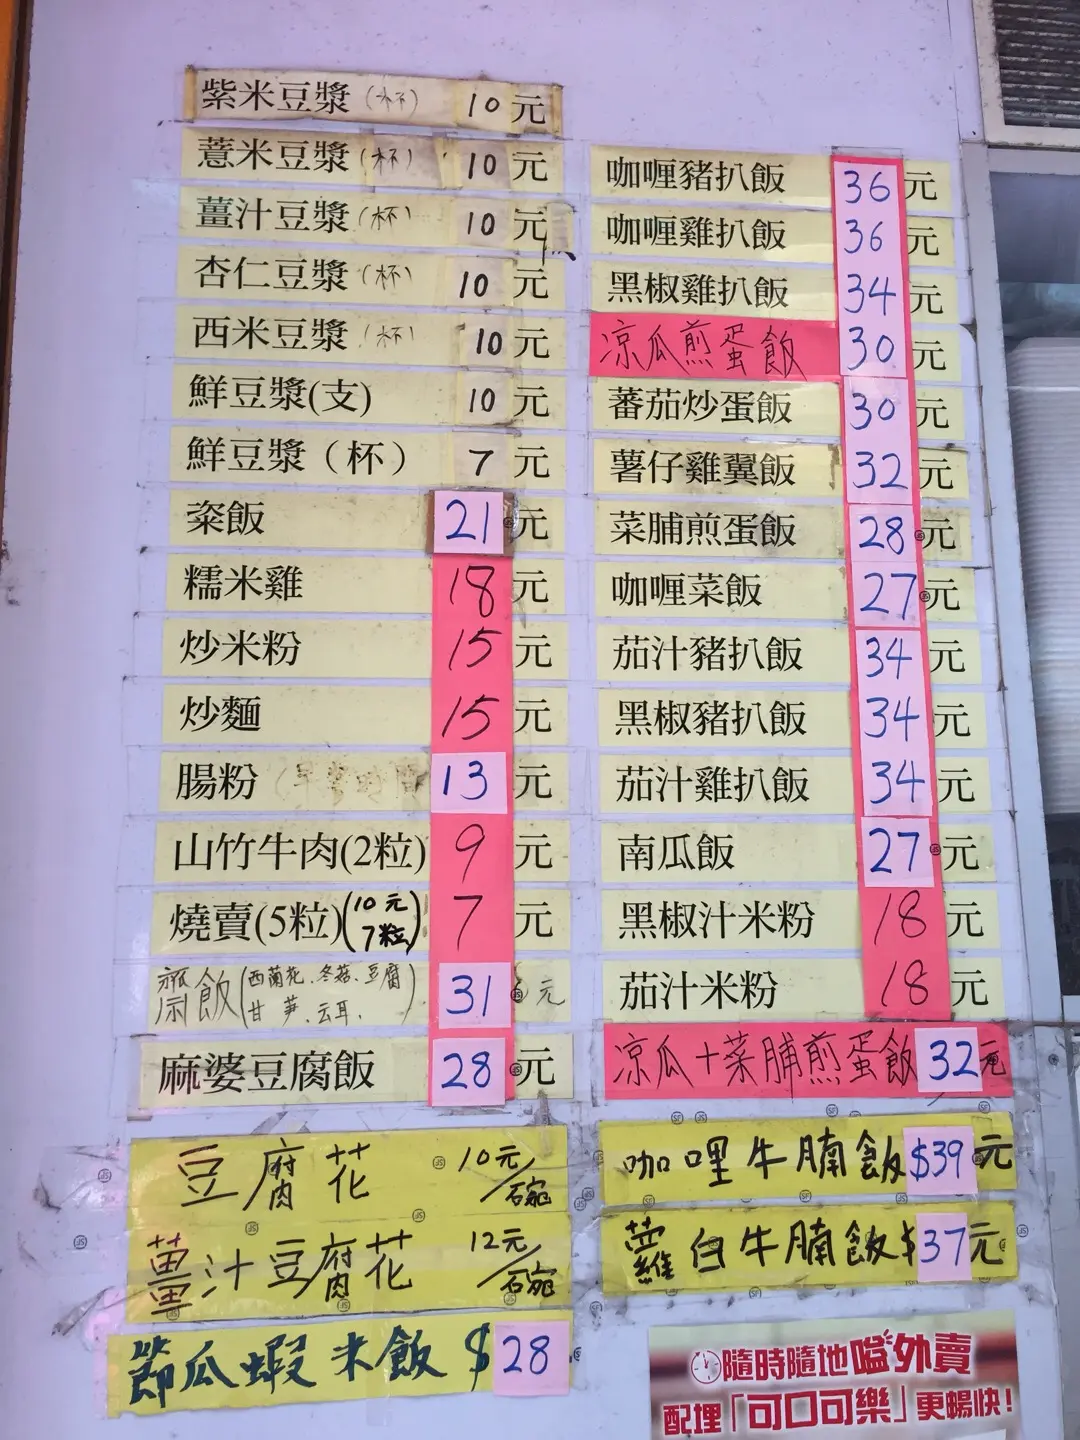 紫米豆漿(杯) 10元
薏米豆漿(杯) 10元
薑汁豆漿(杯) 10元
杏仁豆漿(杯) 10元
西米豆漿(杯) 10元
鮮豆漿(支) 10元
鮮豆漿（杯） 7元
粢飯 21元
糯米雞 18元
炒米粉 15元
炒麵 15元
腸粉 13元
山竹牛肉(2粒) 9元
燒賣(5粒)(10元7粒) 7元
齋飯(西蘭花、冬菇、豆腐 甘荀、云耳、) 31元
麻婆豆腐飯 28元
豆腐花 10元/碗
薑汁豆腐花 12元/碗
節瓜蝦米飯 $28
咖喱豬扒飯 36元
咖喱雞扒飯 36元
黑椒雞扒飯 34元
凉瓜煎蛋飯 30元
蕃茄炒蛋飯 30元
薯仔雞翼飯 32元
菜脯煎蛋飯 28元
咖喱菜飯 27元
茄汁豬扒飯 34元
黑椒豬扒飯 34元
茄汁雞扒飯 34元
南瓜飯 27元
黑椒汁米粉 18元
茄汁米粉 18元
凉瓜+菜脯煎蛋飯 32元
咖哩牛腩飯 $39元
蘿白牛腩飯 $37元
隨時隨地嗌外賣
配埋「可口可樂」更暢快!